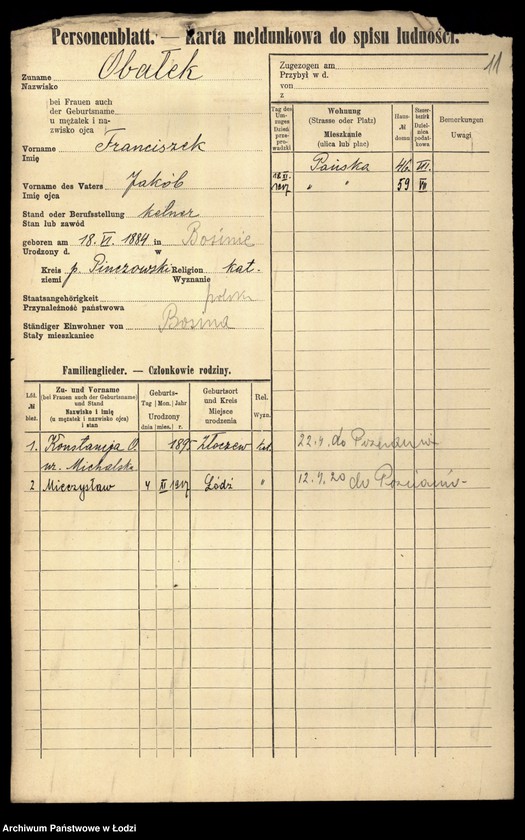 Personenblatt. — Karta meldunkowa do spisu ludności.
11
Zuname Obałek
Nazwisko
bei Frauen auch
der Geburtsname
u mężatek i na-
zwisko ojca
Vorname Franciszek
Imię
Vorname des Vaters Jakób
Imię ojca
Stand oder Berufsstellung kelner
Stan lub zawód
geboren am 18. VI. 1884 in
Urodzony d. w
Kreis p. Pinczowski Religion kat.
ziemi Wyznanie
Staatsangehörigkeit polska
Przynależność państwowa
Ständiger Einwohner von
Stały mieszkaniec
Zugezogen am
Przybył w d.
von
z
Tag des Umzuges Dzień przeprowadzki
Wohnung (Strasse oder Platz) Mieszkanie (ulica lub plac)
Haus- № domu
Steuerbezirk Dzielnica podatkowa
Bemerkungen Uwagi
Pańska 46 VII.
18.II. 1917 " " 59 VII
Familienglieder. — Członkowie rodziny.
Lfd. № bież.
Zu- und Vorname (bei Frauen auch der Geburtsname) und Stand Nazwisko i imię (u mężatek i nazwisko ojca) i stan
Geburts- Tag Mon. Jahr Urodzony dnia mies. r.
Geburtsort und Kreis Miejsce urodzenia
Rel. Wyzn.
1. Konstancja O. 1895 Złoczew kat. 22.4. do Poznania
ur. Michalska
2 Mieczysław 4 XI 1917 Łódź " 12.4.20 do
Archiwum Państwowe w Łodzi